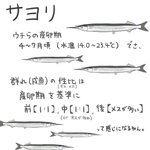 サヨリ
ウチらの産卵期
4〜7月頃(水温14.0〜23.4℃)でさ、
群れ(成魚)の性比は
産卵期を基準に
前[1:1]、中[1:1]、後[メスが多い]
って感じになるねん。